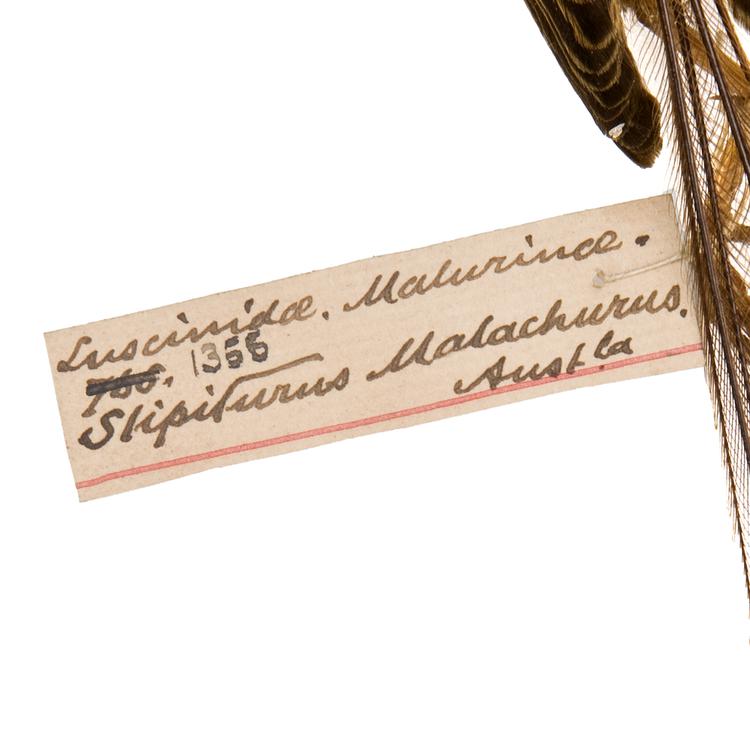 Luscinidæ. Malurinæ.
1356
Stipiturus Malachurus.
Aust la